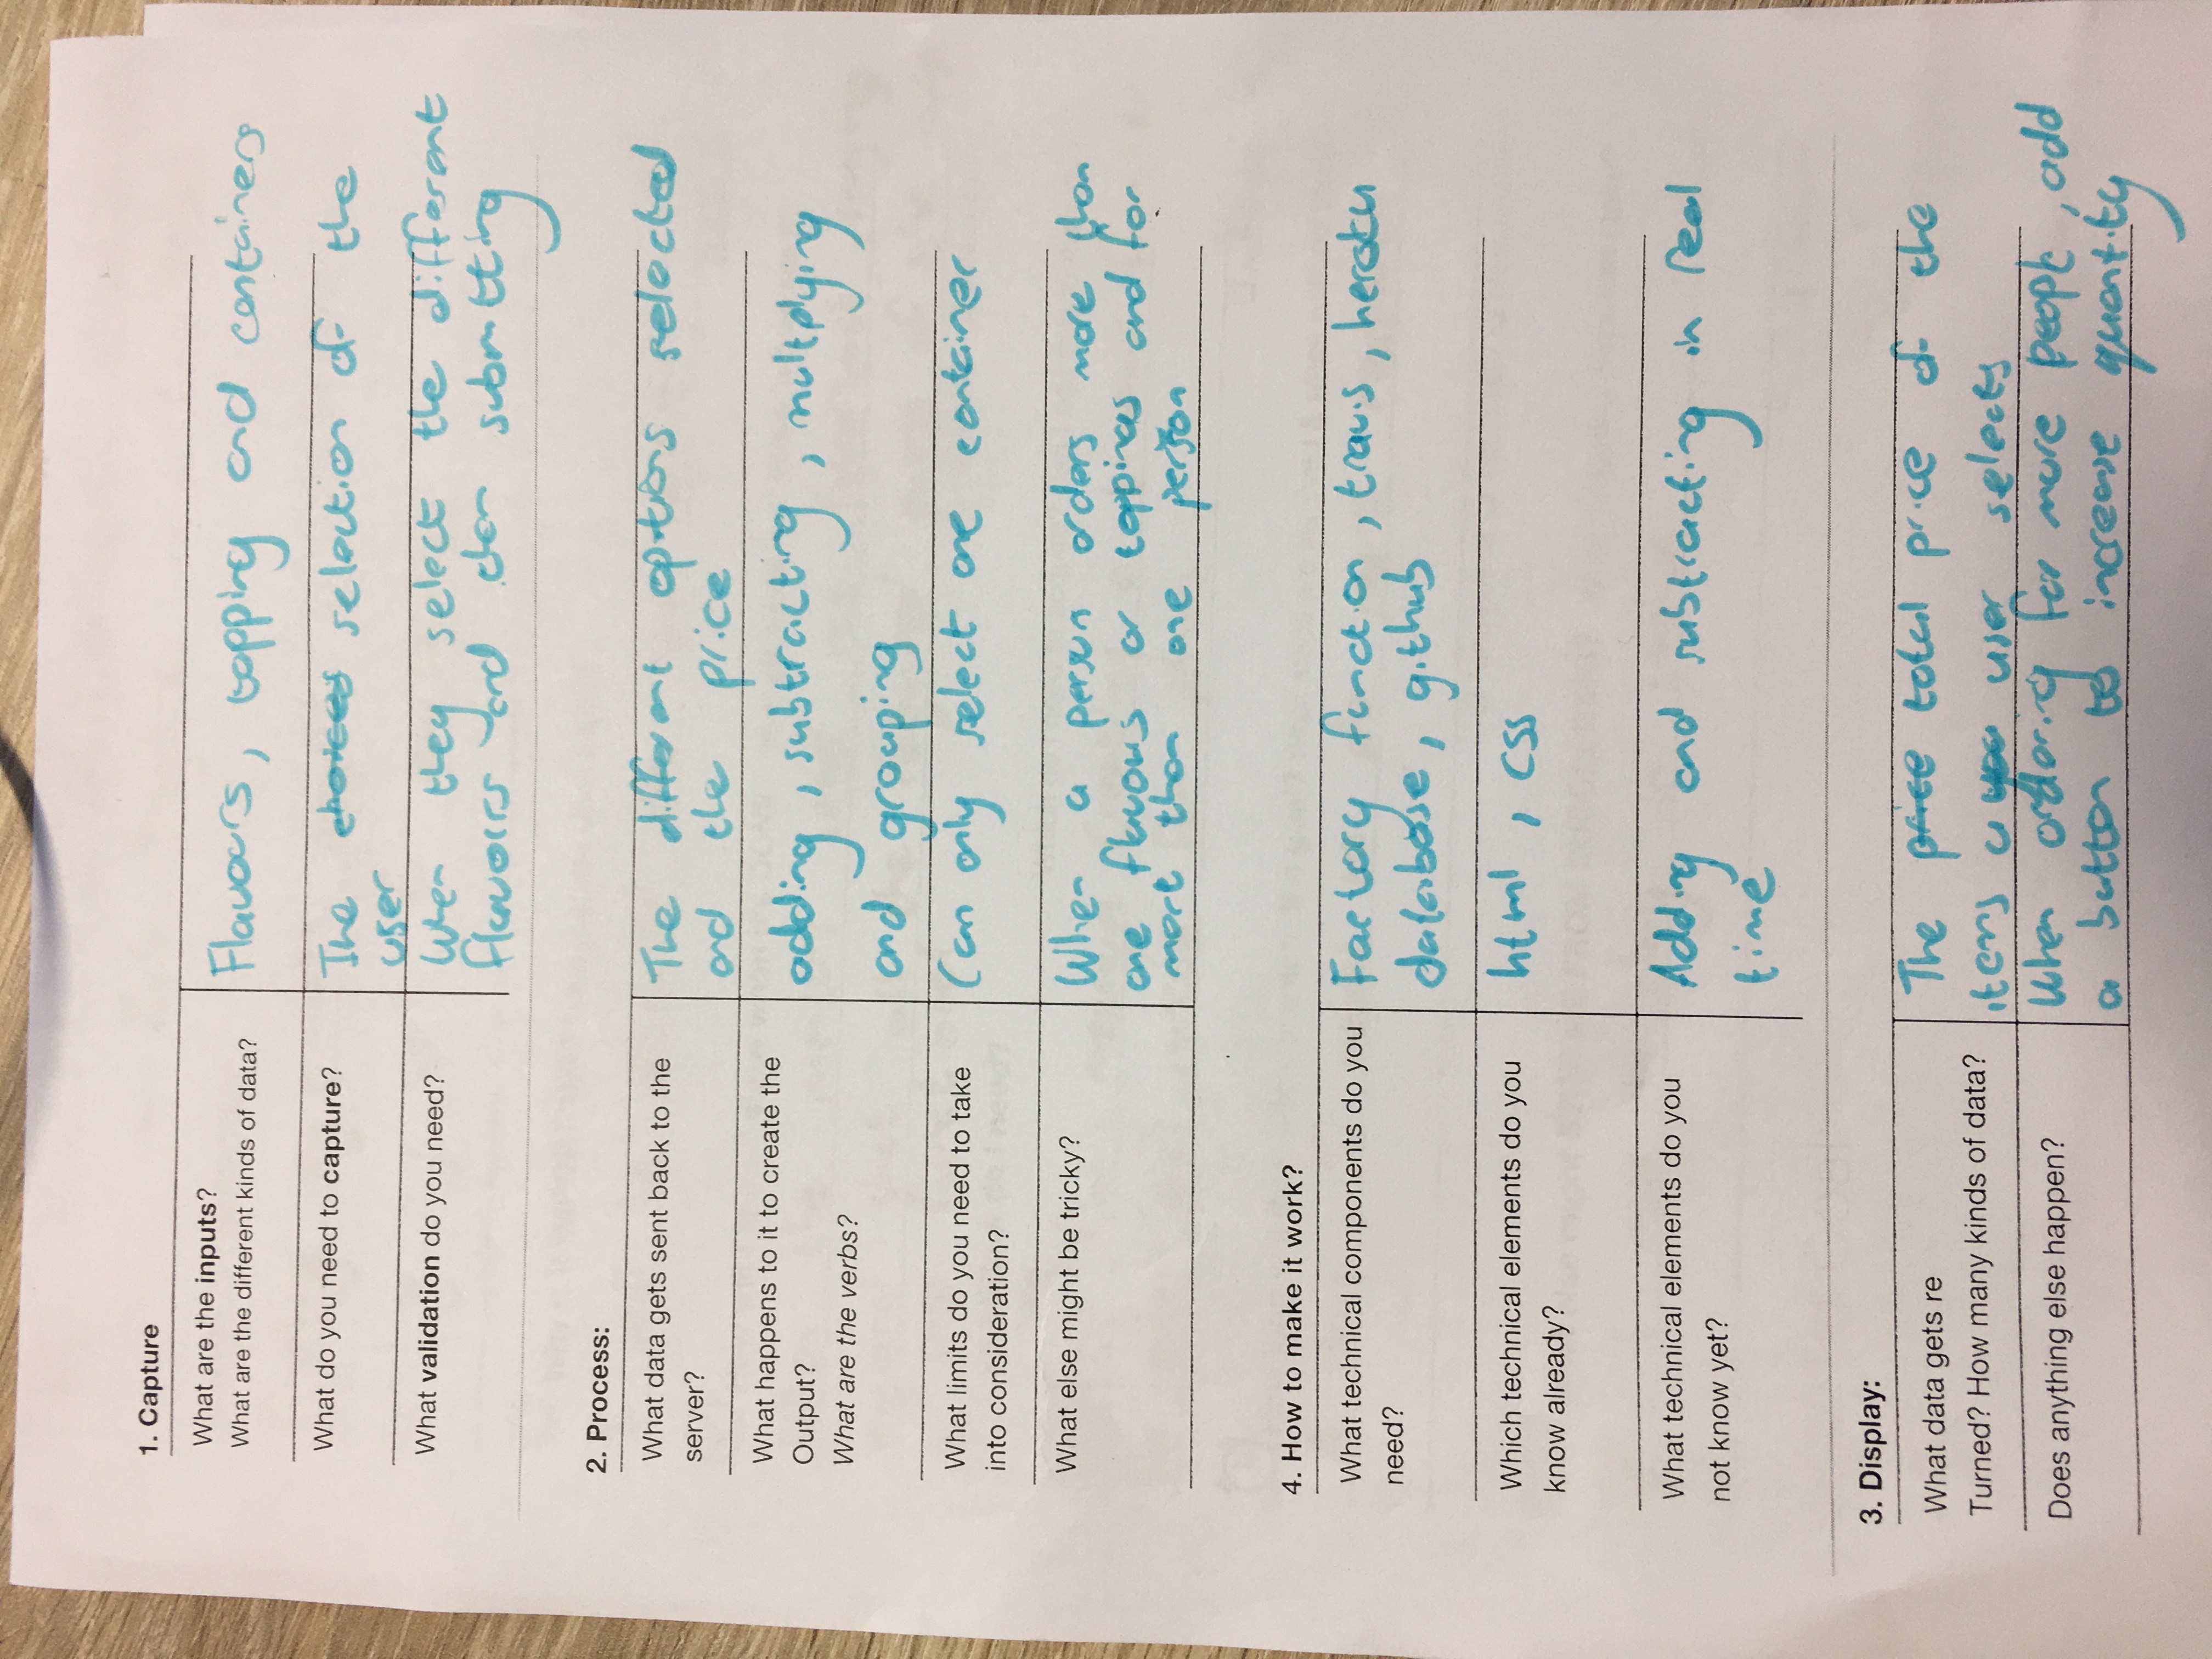 1. Capture
What are the inputs?
What are the different kinds of data?
Flavours, topping and containers
What do you need to capture?
The choices selection of the
user
What validation do you need?
When they select the different
flavours and submitting
2. Process:
What data gets sent back to the
server?
The different options selected
and the price
What happens to it to create the
Output?
What are the verbs?
adding, subtracting, multplying
and grouping
What limits do you need to take
into consideration?
Can only select one container
What else might be tricky?
When a person orders more than
one flavous or toppings and for
more than one person
4. How to make it work?
What technical components do you
need?
Factory function, travis, heroku
database, github
Which technical elements do you
know already?
html, css
What technical elements do you
not know yet?
Adding and subtracting in Real
time
3. Display:
What data gets re
Turned? How many kinds of data?
The price total price of the
items a you user selects
Does anything else happen?
When ordering for more people, add
a button to increase quantity